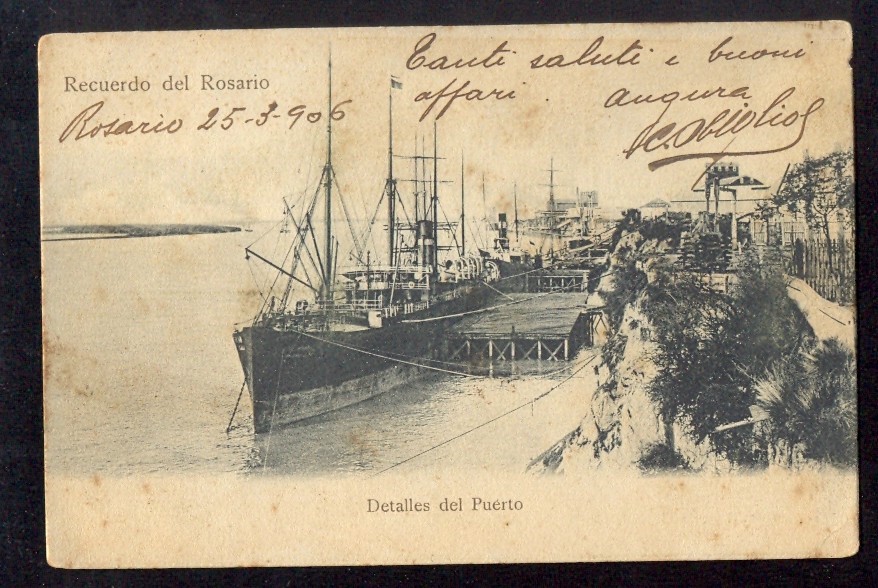 Recuerdo del Rosario
Rosario 25-3-906
Tanti saluti e buoni
affari. augura
Detalles del Puerto